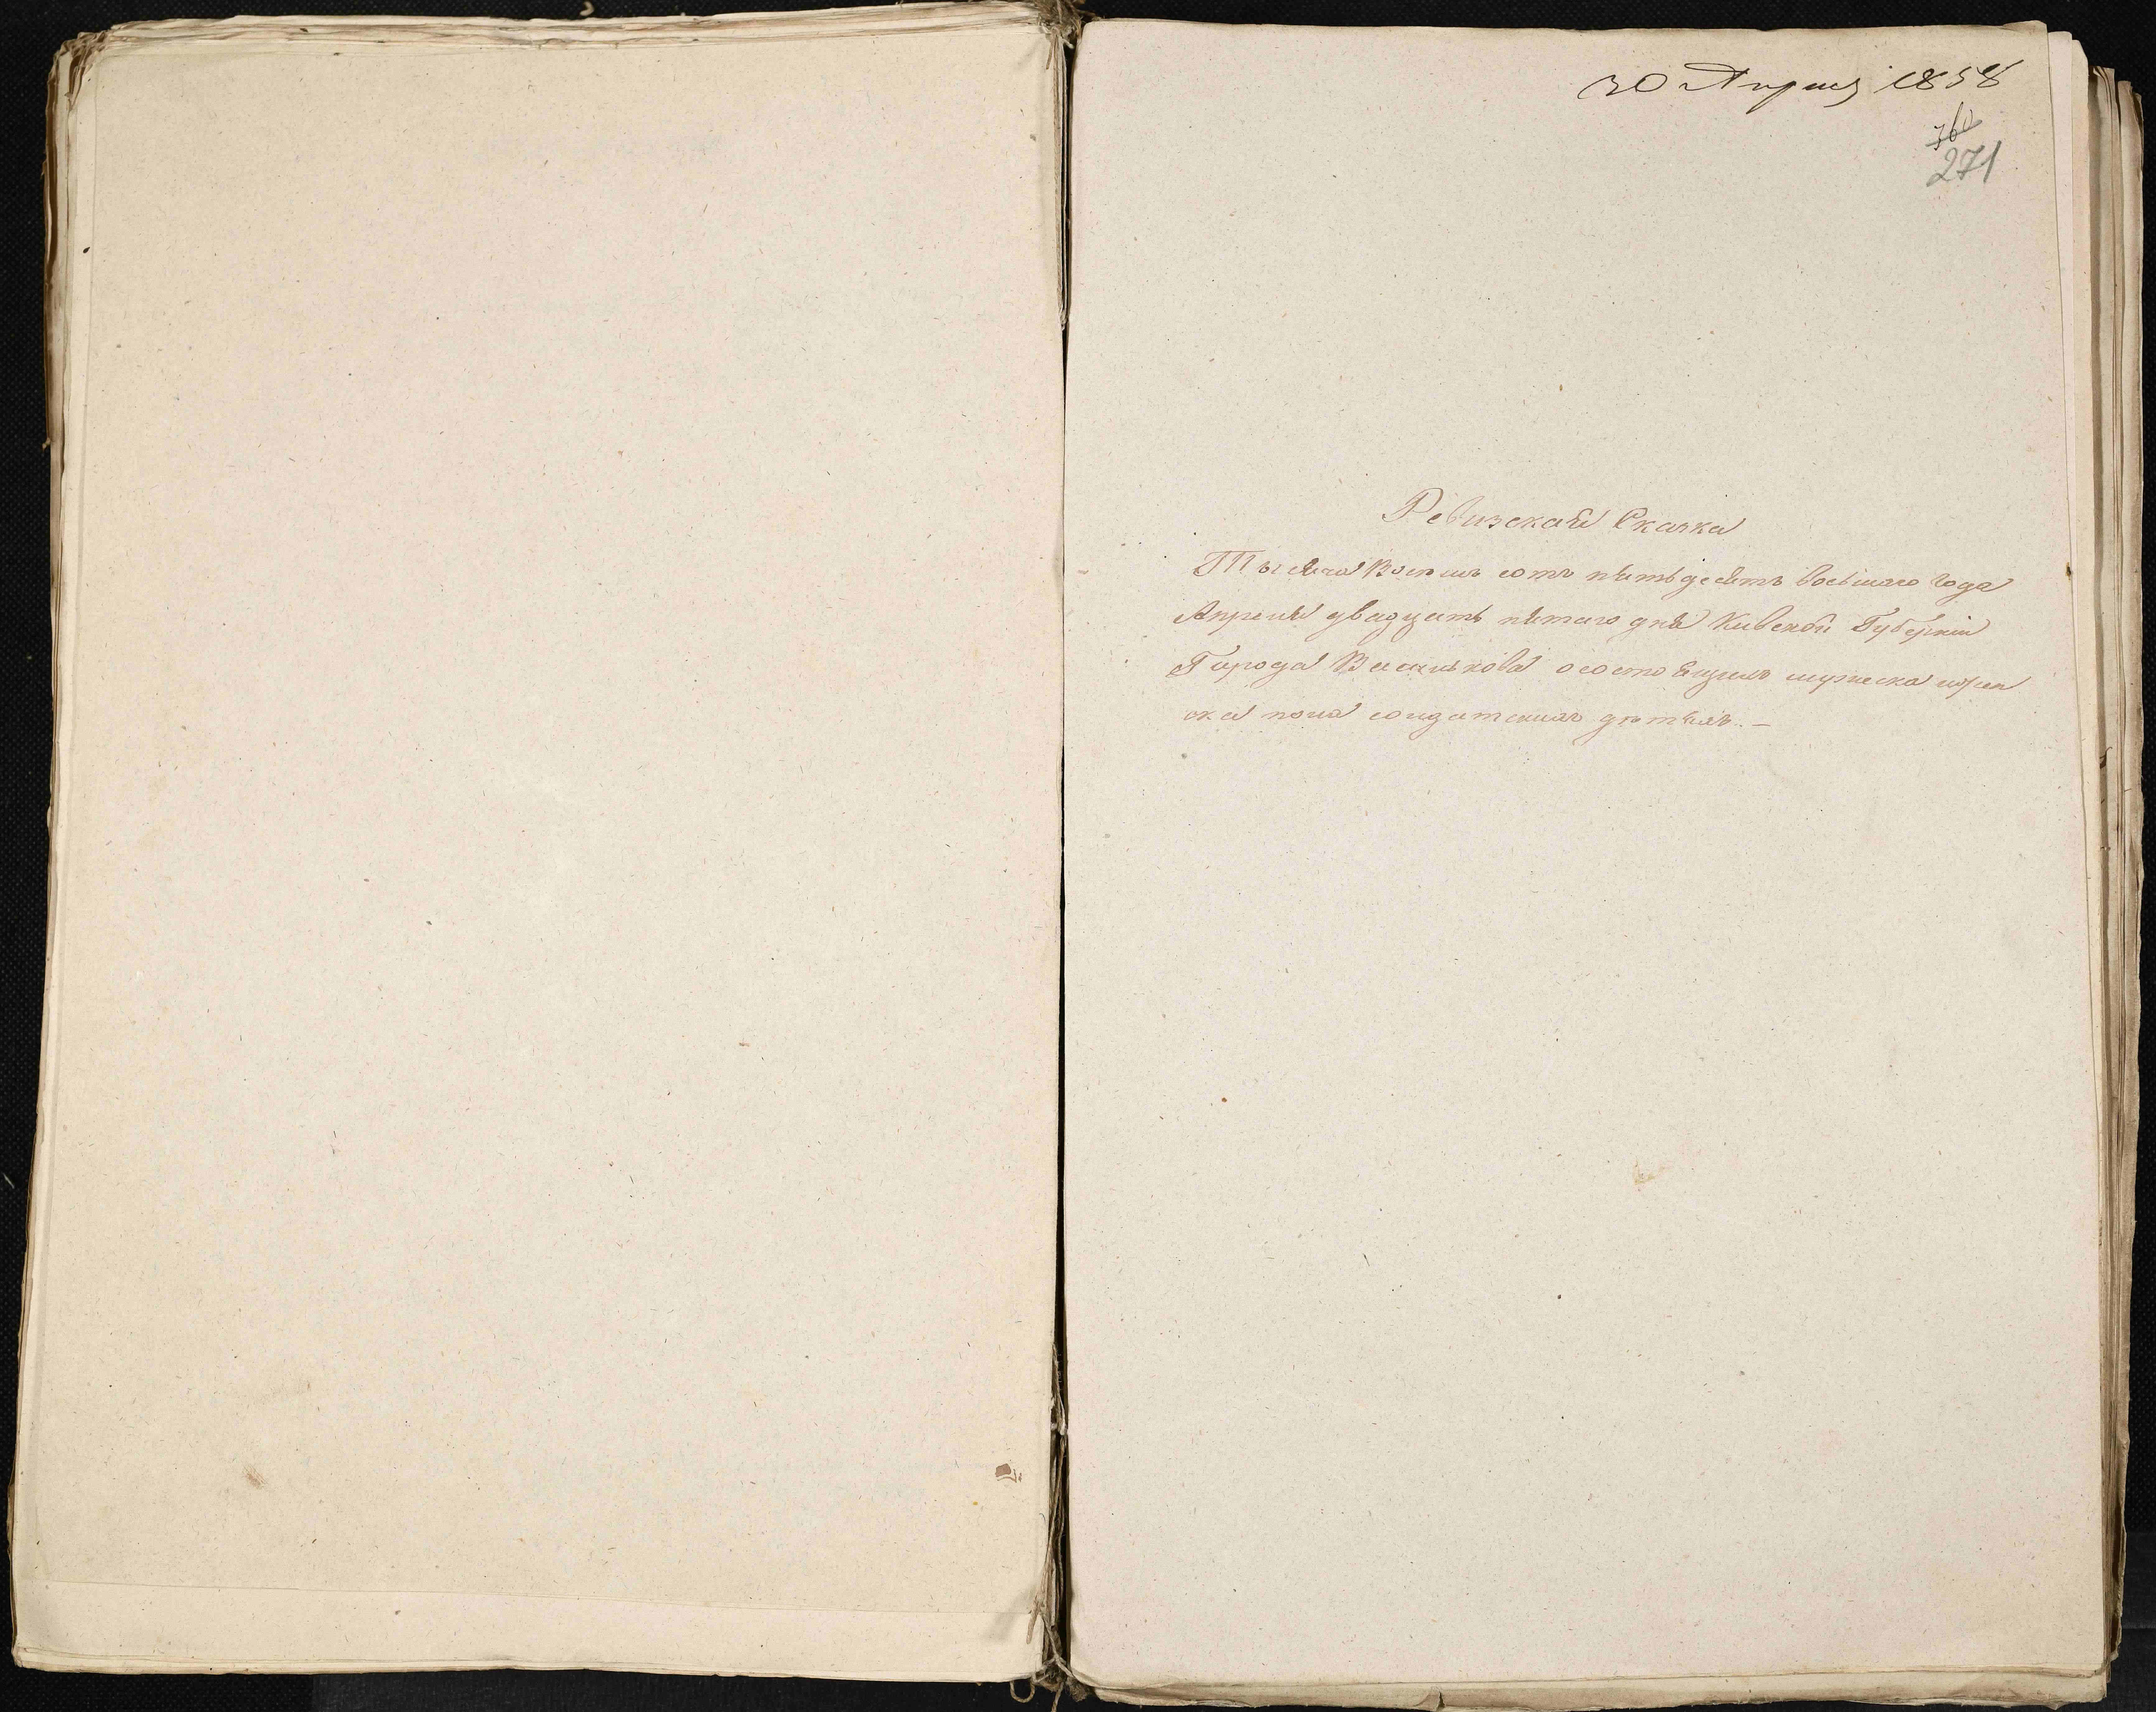 30 Апреля 1858
360
271
Ревизская Сказка
Тысяча Восемь сотъ пятьдесятъ восьмаго года
Апреля двадцать пятаго дня Киевской Губерніи
Города Василькова о состоящихъ мужеска и жен
ска пола солдатскихъ дѣтяхъ. —